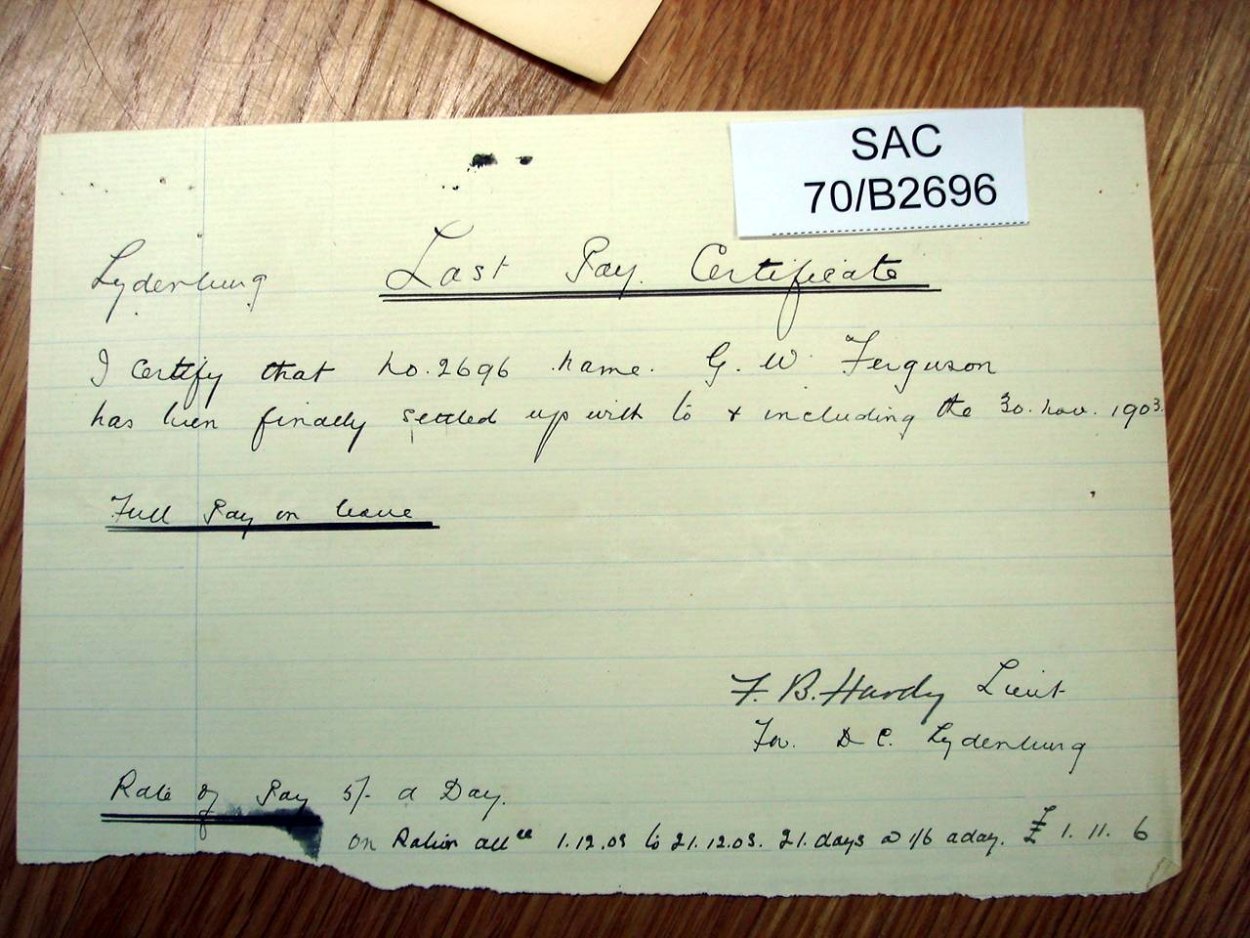 SAC
70/B2696
Lydenburg Last Pay Certificate
I certify that no. 2696 name. G. W. Ferguson
has been finally settled up with to & including the 30. Nov. 1903.
Full Pay on leave
F. B. Hardy Lieut
For. D C. Lydenburg
Rate of Pay 5/- a Day.
on Ration allce 1.12.03 to 21.12.03. 21. days @ 1/6 a day. £ 1. 11. 6